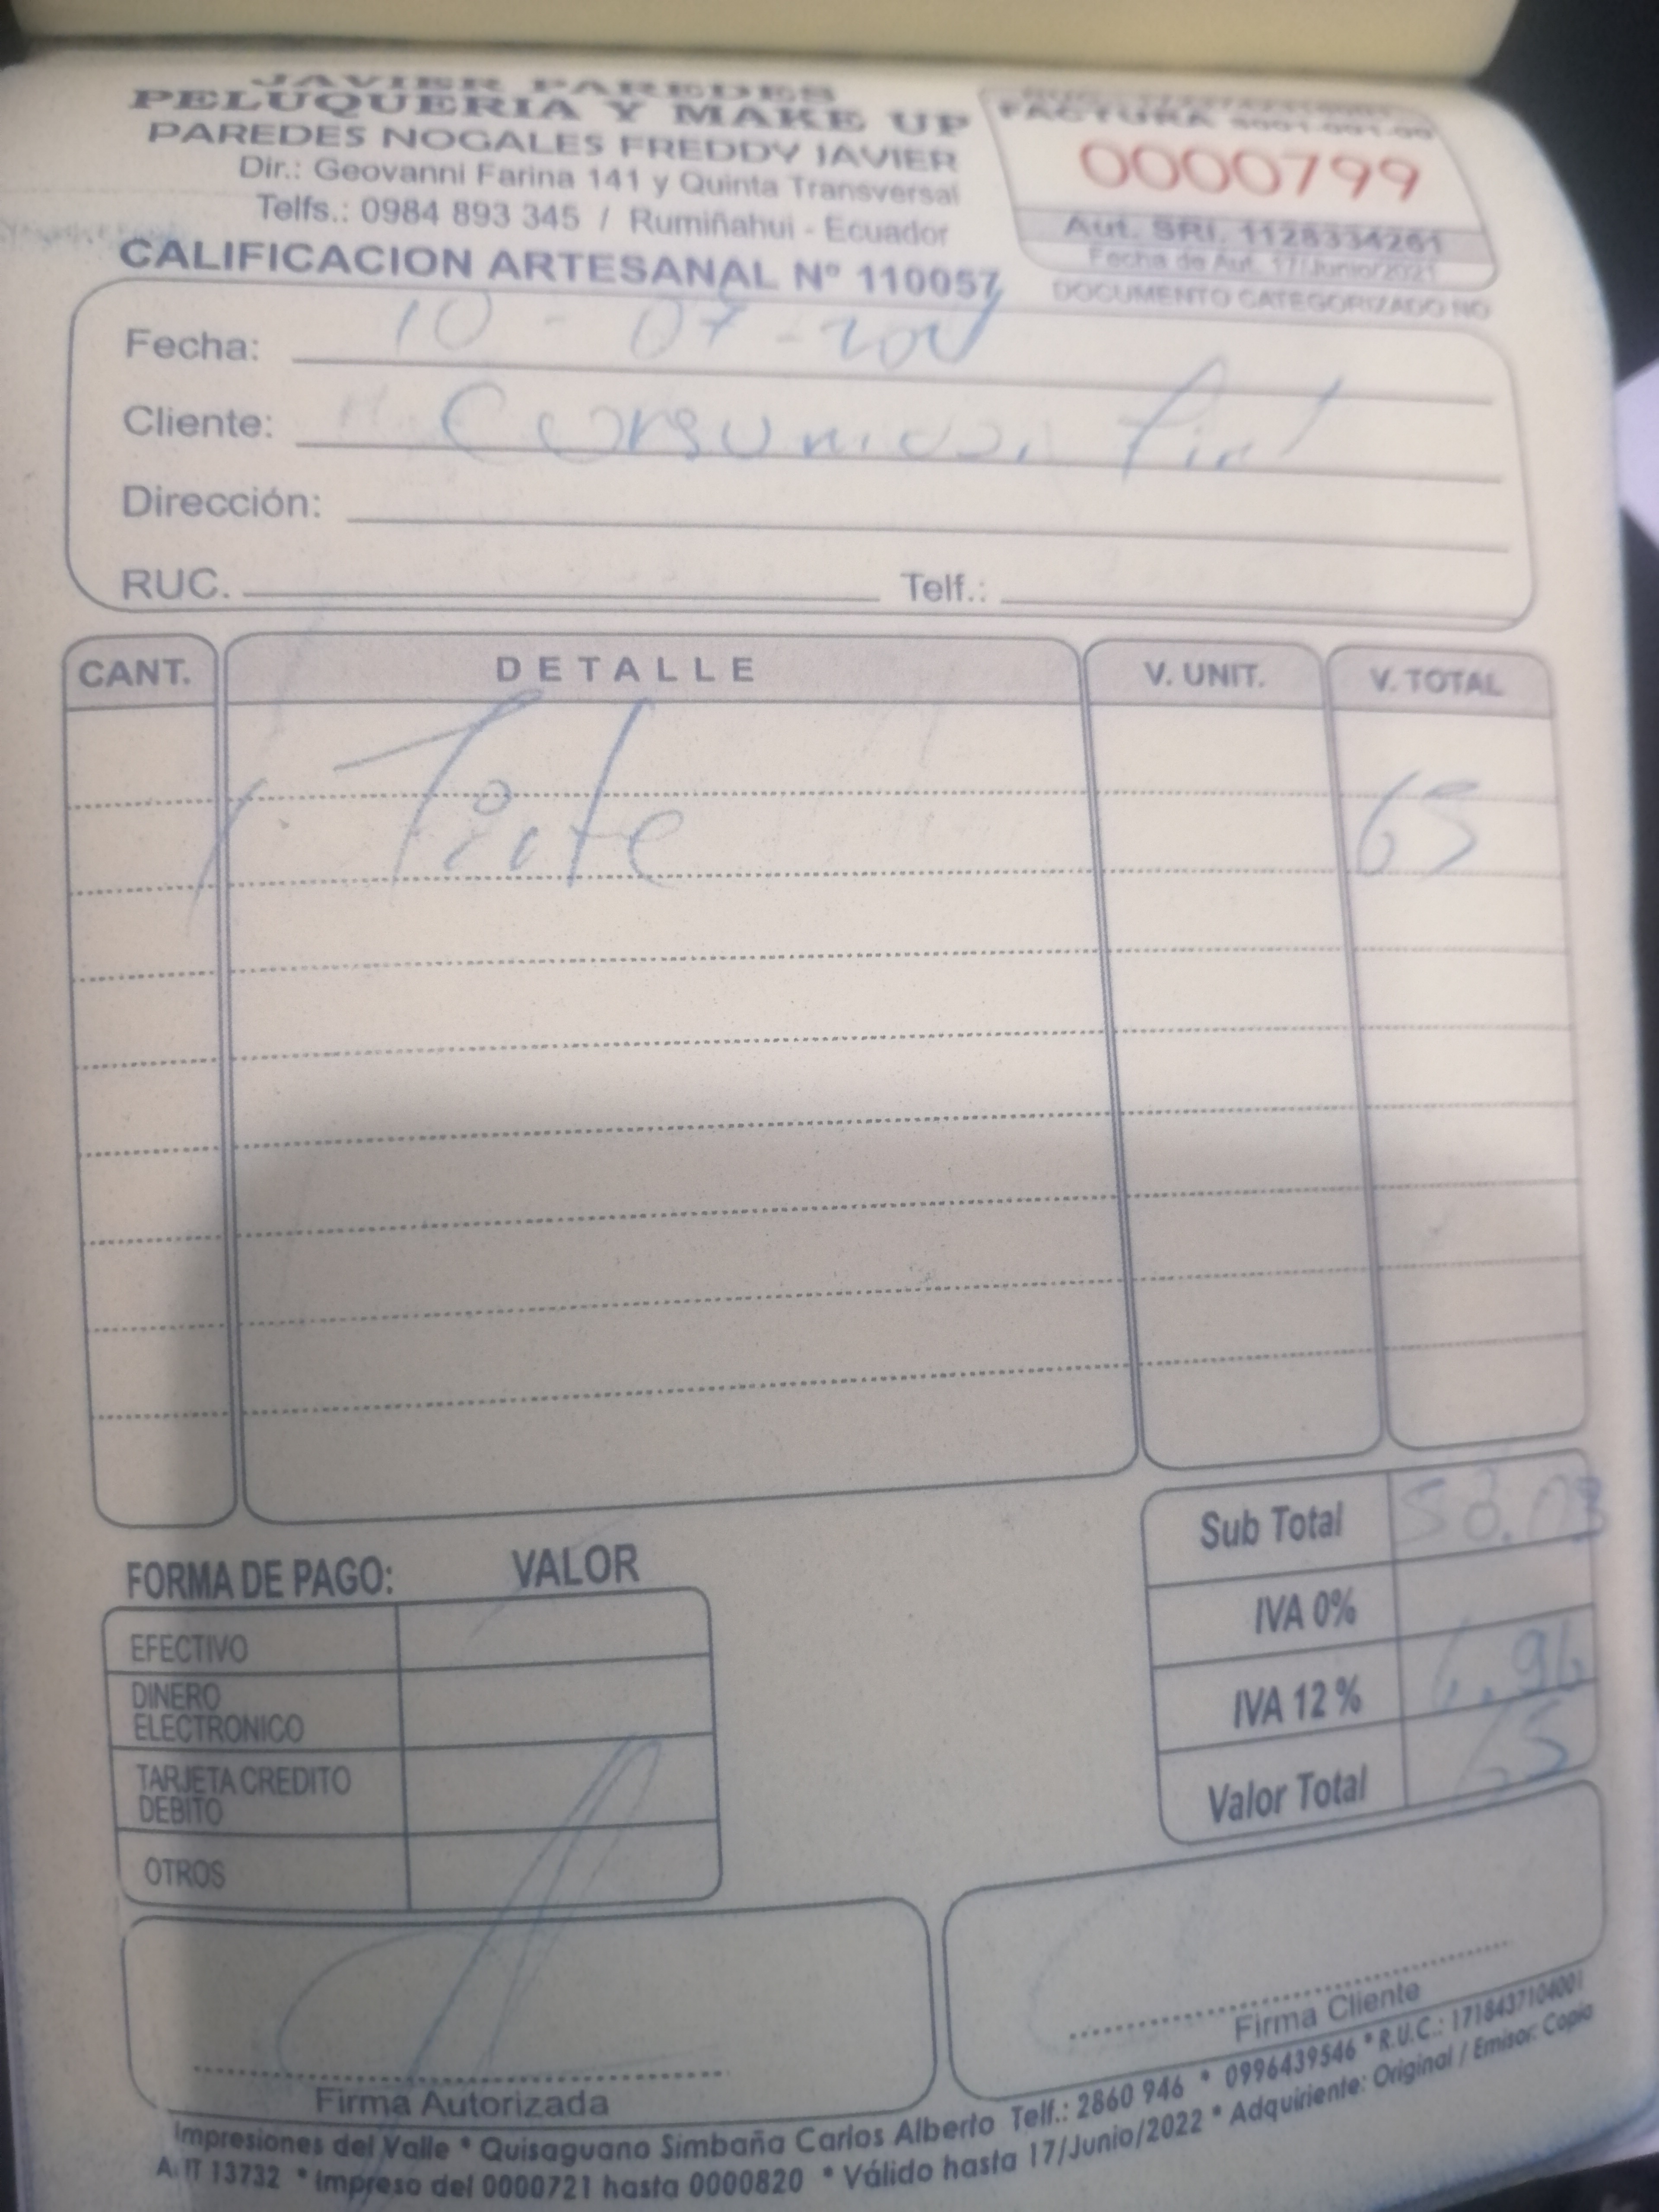 JAVIER PAREDES
PELUQUERIA Y MAKE UP
PAREDES NOGALES FREDDY JAVIER
Dir.: Geovanni Farina 141 y Quinta Transversal
Telfs.: 0984 893 345 / Rumiñahui - Ecuador
CALIFICACION ARTESANAL Nº 110057
FACTURA S001-001-00
0000799
Aut. SRI. 1128334261
Fecha de Aut. 17/Junio/2021
DOCUMENTO CATEGORIZADO NO
Fecha: 10 - 07 -
Cliente: Consumidor Final
Dirección:
RUC. Telf.:
CANT. DETALLE V. UNIT. V. TOTAL
1. Tinte 65
Sub Total 58.03
IVA 0%
IVA 12% 6.96
Valor Total 65
FORMA DE PAGO: VALOR
EFECTIVO
DINERO
ELECTRONICO
TARJETA CREDITO
DEBITO
OTROS
Firma Autorizada
Firma Cliente
Impresiones del Valle * Quisaguano Simbaña Carlos Alberto Telf.: 2860 946 * 0996439546 * R.U.C.: 1718437104001
A. IT 13732 * Impreso del 0000721 hasta 0000820 * Válido hasta 17/Junio/2022 * Adquiriente: Original / Emisor: Copia